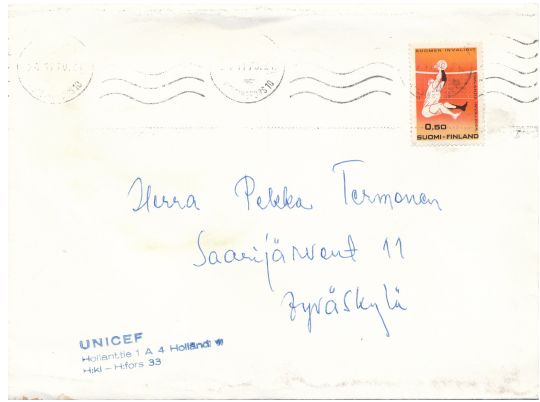 SUOMEN INVALIDIT
0,50
SUOMI-FINLAND
Herra Pekka Termonen
Saarijärvent 11
Jyväskylä
UNICEF
Hollanttie 1 A 4
H:ki – H:fors 33